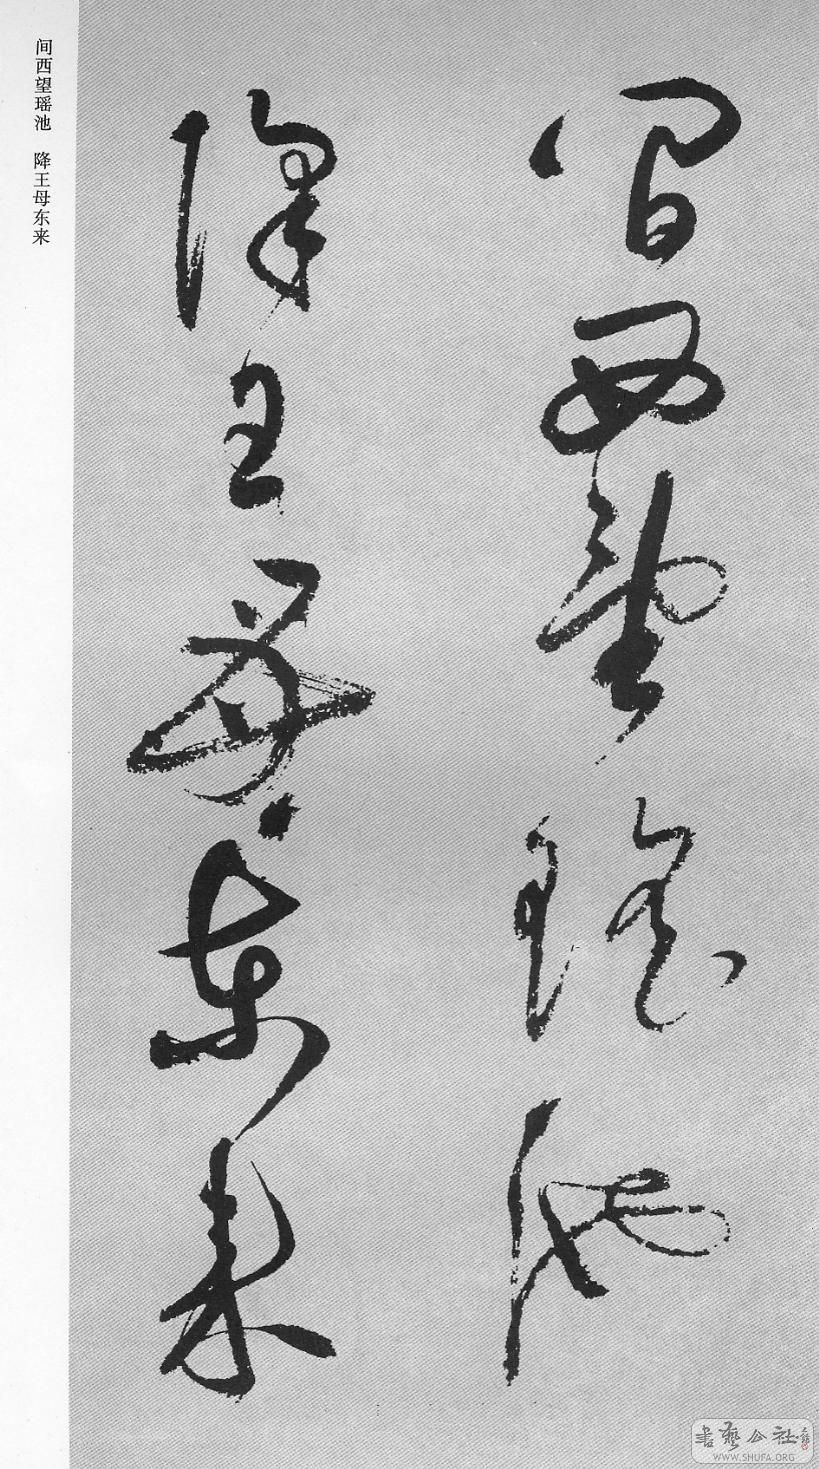 间西望瑶池
降王母东来
间西望瑶池 降王母东来
书艺公社
WWW.SHUFA.ORG